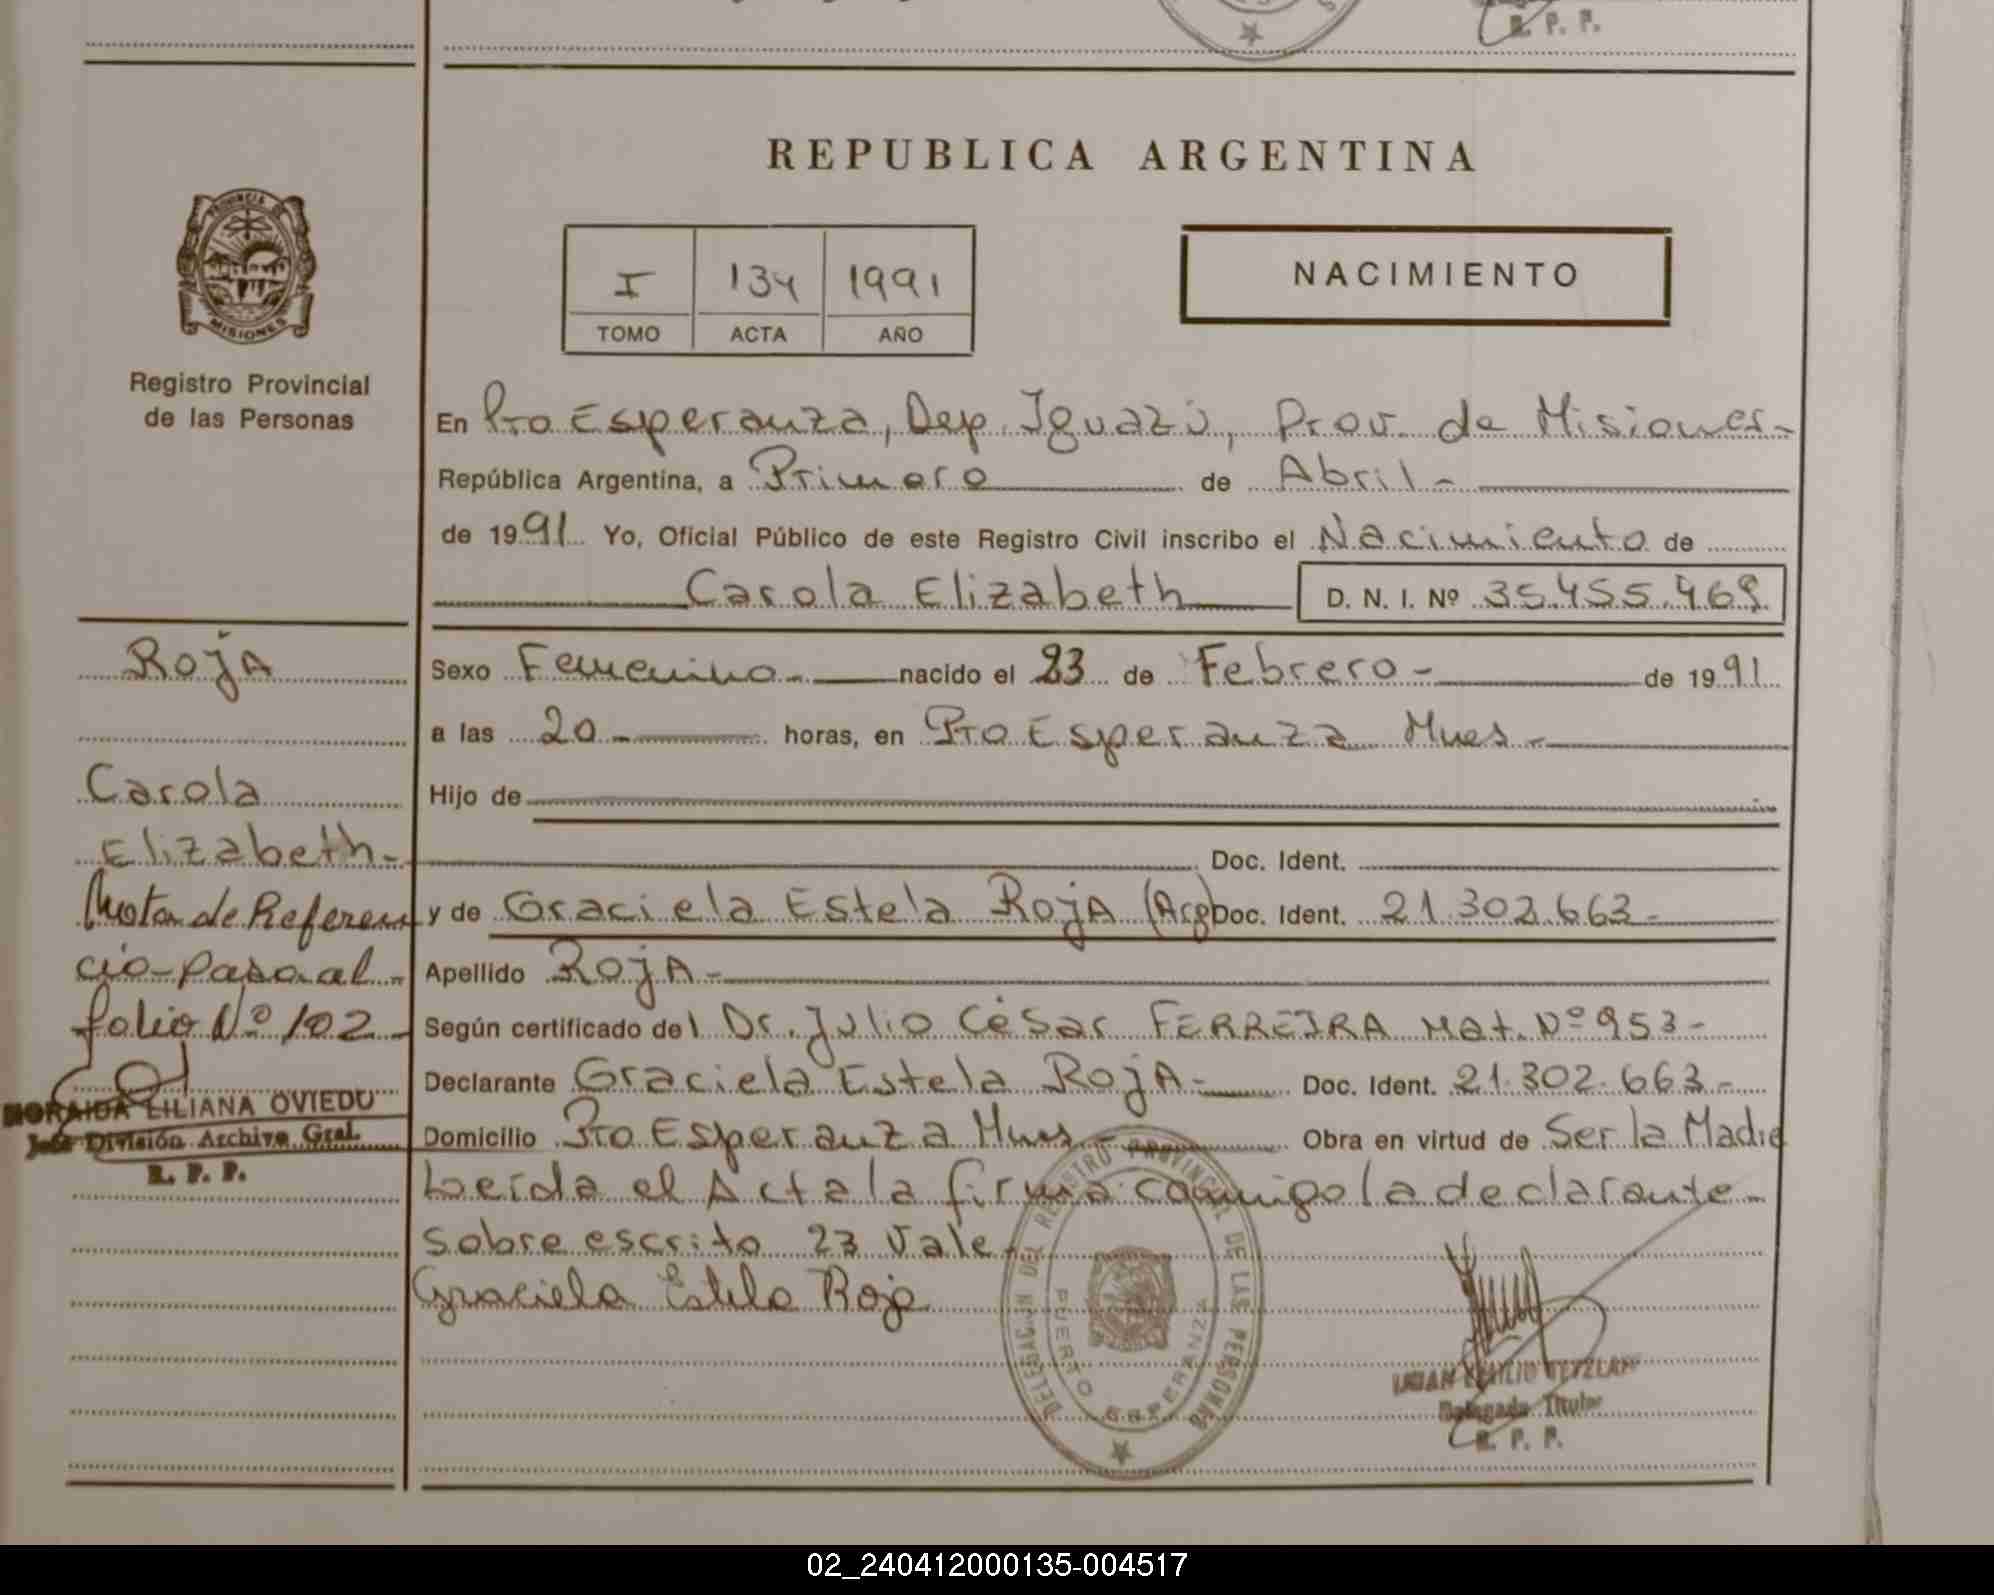 R. P. P.
REPUBLICA ARGENTINA
PROVINCIA DE
MISIONES
I 134 1991
TOMO ACTA AÑO
NACIMIENTO
Registro Provincial
de las Personas
En Pto Esperanza, Dep. Iguazú, Prov. de Misiones-
República Argentina, a Primero de Abril-
de 1991 Yo, Oficial Público de este Registro Civil inscribo el Nacimiento de
Carola Elizabeth D. N. I. Nº 35.455.469
RojA
Carola
Elizabeth-
Nota de Referen
cia-Pasa al-
folio Nº 102-
NORAIDA LILIANA OVIEDO
Jefe División Archivo Gral.
R. P. P.
Sexo Femenino- nacido el 23 de Febrero- de 1991
a las 20- horas, en Pto Esperanza Mnes-
Hijo de
Doc. Ident.
y de Graciela Estela RojA (Arg) Doc. Ident. 21.302.663-
Apellido RojA-
Según certificado del Dr. Julio César FERREIRA Mat. Nº 953-
Declarante Graciela Estela RojA- Doc. Ident. 21.302.663-
Domicilio Pto Esperanza Mnes- Obra en virtud de Ser la Madre
Leída el Acta la firma conmigo la declarante-
sobre escrito 23 Vale-
Graciela Estela Roja
DELEGACION DEL REGISTRO PROVINCIAL DE LAS PERSONAS
PUERTO ESPERANZA
JUAN EMILIO TETZLAFF
Delegado Titular
R. P. P.
02_240412000135-004517